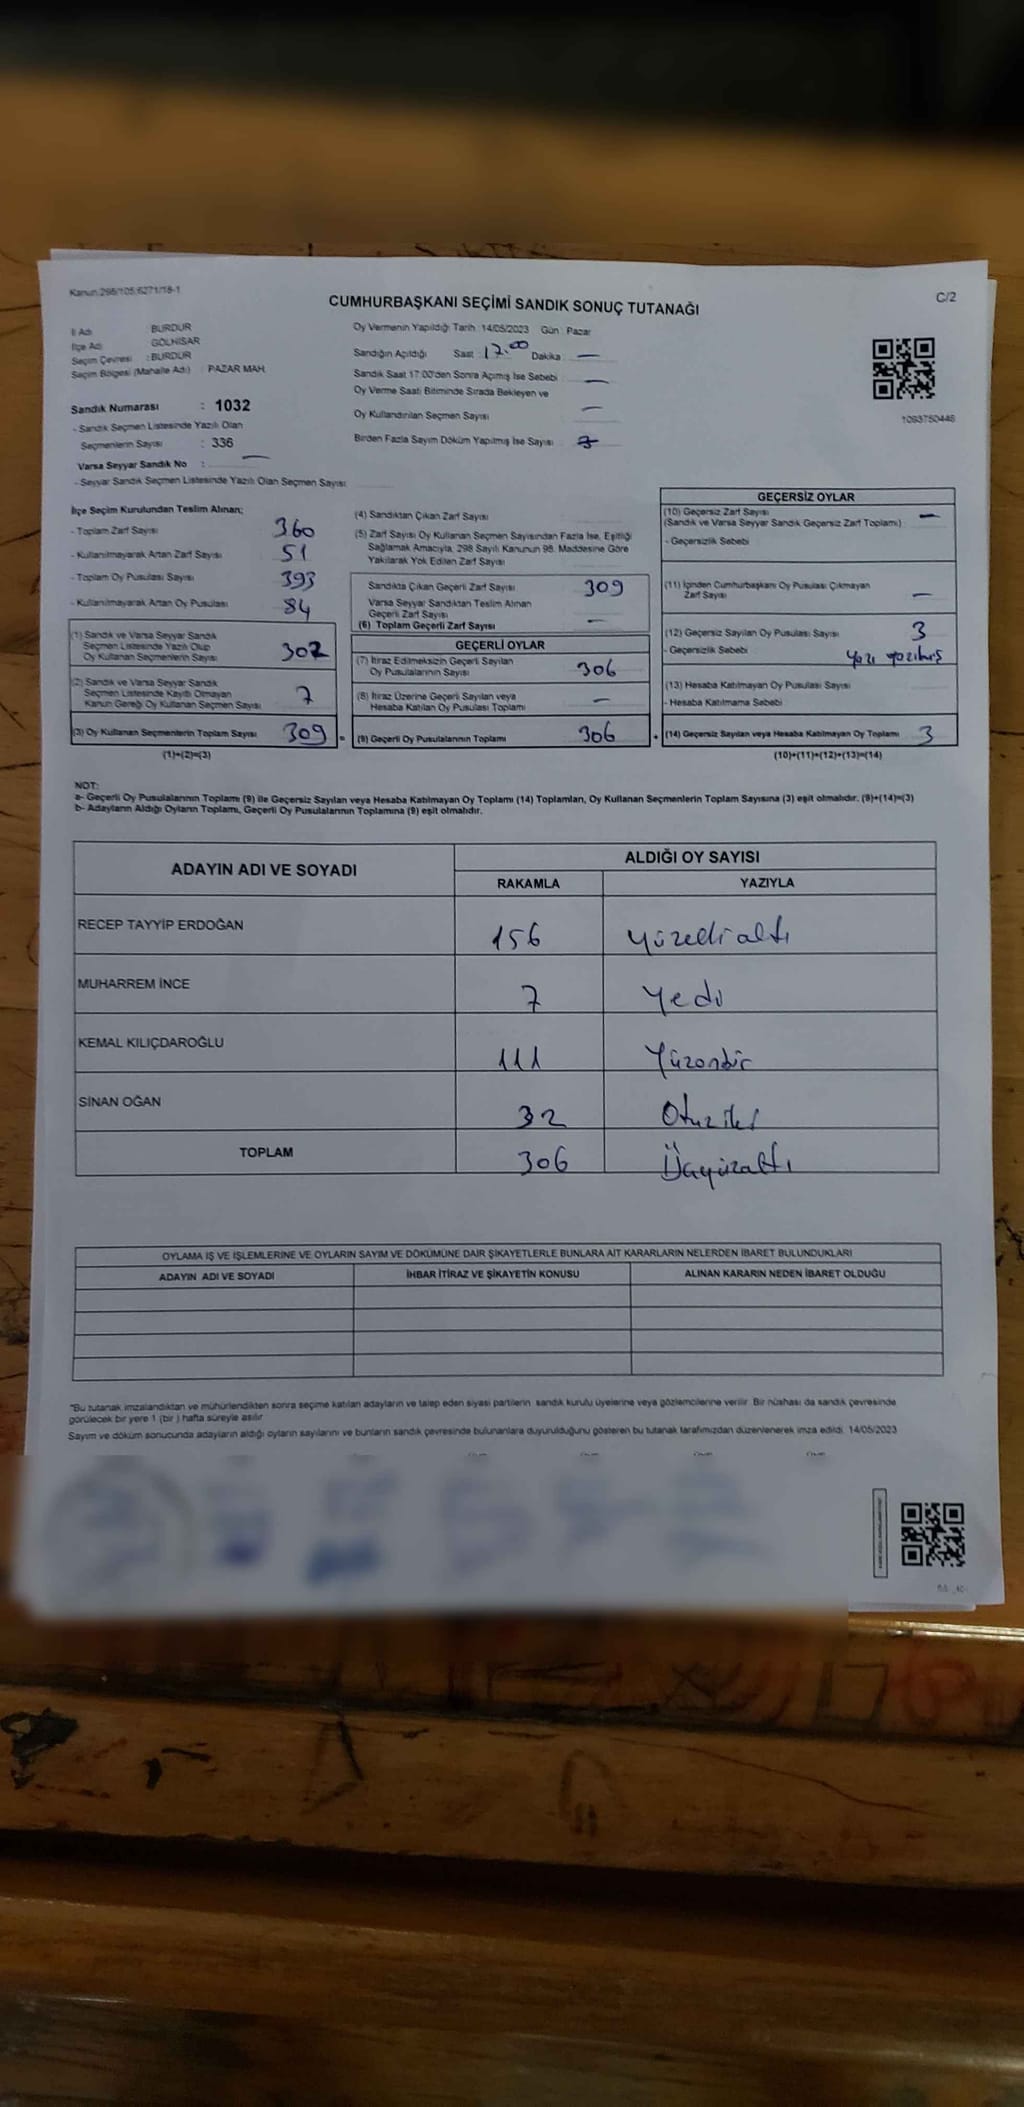 Kanun:298/105,6271/18-1
CUMHURBAŞKANI SEÇİMİ SANDIK SONUÇ TUTANAĞI
C/2
İl Adı : BURDUR
İlçe Adı : GÖLHİSAR
Seçim Çevresi : BURDUR
Seçim Bölgesi (Mahalle Adı) : PAZAR MAH.
Sandık Numarası : 1032
- Sandık Seçmen Listesinde Yazılı Olan
Seçmenlerin Sayısı : 336
Varsa Seyyar Sandık No : —
- Seyyar Sandık Seçmen Listesinde Yazılı Olan Seçmen Sayısı
Oy Vermenin Yapıldığı Tarih : 14/05/2023 Gün : Pazar
Sandığın Açıldığı Saat : 17.00 Dakika : —
Sandık Saat 17:00'den Sonra Açımış İse Sebebi —
Oy Verme Saati Bitiminde Sırada Bekleyen ve
Oy Kullandırılan Seçmen Sayısı —
Birden Fazla Sayım Döküm Yapılmış İse Sayısı
1093750446
İlçe Seçim Kurulundan Teslim Alınan;
- Toplam Zarf Sayısı 360
- Kullanılmayarak Artan Zarf Sayısı 51
- Toplam Oy Pusulası Sayısı 393
- Kullanılmayarak Artan Oy Pusulası 84
(1) Sandık ve Varsa Seyyar Sandık
Seçmen Listesinde Yazılı Olup
Oy Kullanan Seçmenlerin Sayısı 302
(2) Sandık ve Varsa Seyyar Sandık
Seçmen Listesinde Kayıtlı Olmayan
Kanun Gereği Oy Kullanan Seçmen Sayısı 7
(3) Oy Kullanan Seçmenlerin Toplam Sayısı 309 =
(1)+(2)=(3)
(4) Sandıktan Çıkan Zarf Sayısı
(5) Zarf Sayısı Oy Kullanan Seçmen Sayısından Fazla İse, Eşitliği
Sağlamak Amacıyla, 298 Sayılı Kanunun 98. Maddesine Göre
Yakılarak Yok Edilen Zarf Sayısı
Sandıkta Çıkan Geçerli Zarf Sayısı 309
Varsa Seyyar Sandıktan Teslim Alınan
Geçerli Zarf Sayısı
(6) Toplam Geçerli Zarf Sayısı —
GEÇERLİ OYLAR
(7) İtiraz Edilmeksizin Geçerli Sayılan
Oy Pusulalarının Sayısı 306
(8) İtiraz Üzerine Geçerli Sayılan veya
Hesaba Katılan Oy Pusulası Toplamı —
(9) Geçerli Oy Pusulalarının Toplamı 306 +
GEÇERSİZ OYLAR
(10) Geçersiz Zarf Sayısı —
(Sandık ve Varsa Seyyar Sandık Geçersiz Zarf Toplamı)
- Geçersizlik Sebebi
(11) İçinden Cumhurbaşkanı Oy Pusulası Çıkmayan
Zarf Sayısı —
(12) Geçersiz Sayılan Oy Pusulası Sayısı 3
- Geçersizlik Sebebi yazı yazılmış
(13) Hesaba Katılmayan Oy Pusulası Sayısı
- Hesaba Katılmama Sebebi
(14) Geçersiz Sayılan veya Hesaba Katılmayan Oy Toplamı 3
(10)+(11)+(12)+(13)=(14)
NOT:
a- Geçerli Oy Pusulalarının Toplamı (9) ile Geçersiz Sayılan veya Hesaba Katılmayan Oy Toplamı (14) Toplamları, Oy Kullanan Seçmenlerin Toplam Sayısına (3) eşit olmalıdır. (9)+(14)=(3)
b- Adayların Aldığı Oyların Toplamı, Geçerli Oy Pusulalarının Toplamına (9) eşit olmalıdır.
ADAYIN ADI VE SOYADI
ALDIĞI OY SAYISI
RAKAMLA YAZIYLA
RECEP TAYYİP ERDOĞAN 156 Yüzelli altı
MUHARREM İNCE 7 Yedi
KEMAL KILIÇDAROĞLU 111 Yüzonbir
SİNAN OĞAN 32 Otuziki
TOPLAM 306 Üçyüzaltı
OYLAMA İŞ VE İŞLEMLERİNE VE OYLARIN SAYIM VE DÖKÜMÜNE DAİR ŞİKAYETLERLE BUNLARA AİT KARARLARIN NELERDEN İBARET BULUNDUKLARI
ADAYIN ADI VE SOYADI İHBAR İTİRAZ VE ŞİKAYETİN KONUSU ALINAN KARARIN NEDEN İBARET OLDUĞU
"Bu tutanak imzalandıktan ve mühürlendikten sonra seçime katılan adayların ve talep eden siyasi partilerin sandık kurulu üyelerine veya gözlemcilerine verilir. Bir nüshası da sandık çevresinde
görülecek bir yere 1 (bir) hafta süreyle asılır.
Sayım ve döküm sonucunda adayların aldığı oyların sayılarını ve bunların sandık çevresinde bulunanlara duyurulduğunu gösteren bu tutanak tarafımızdan düzenlenerek imza edildi. 14/05/2023